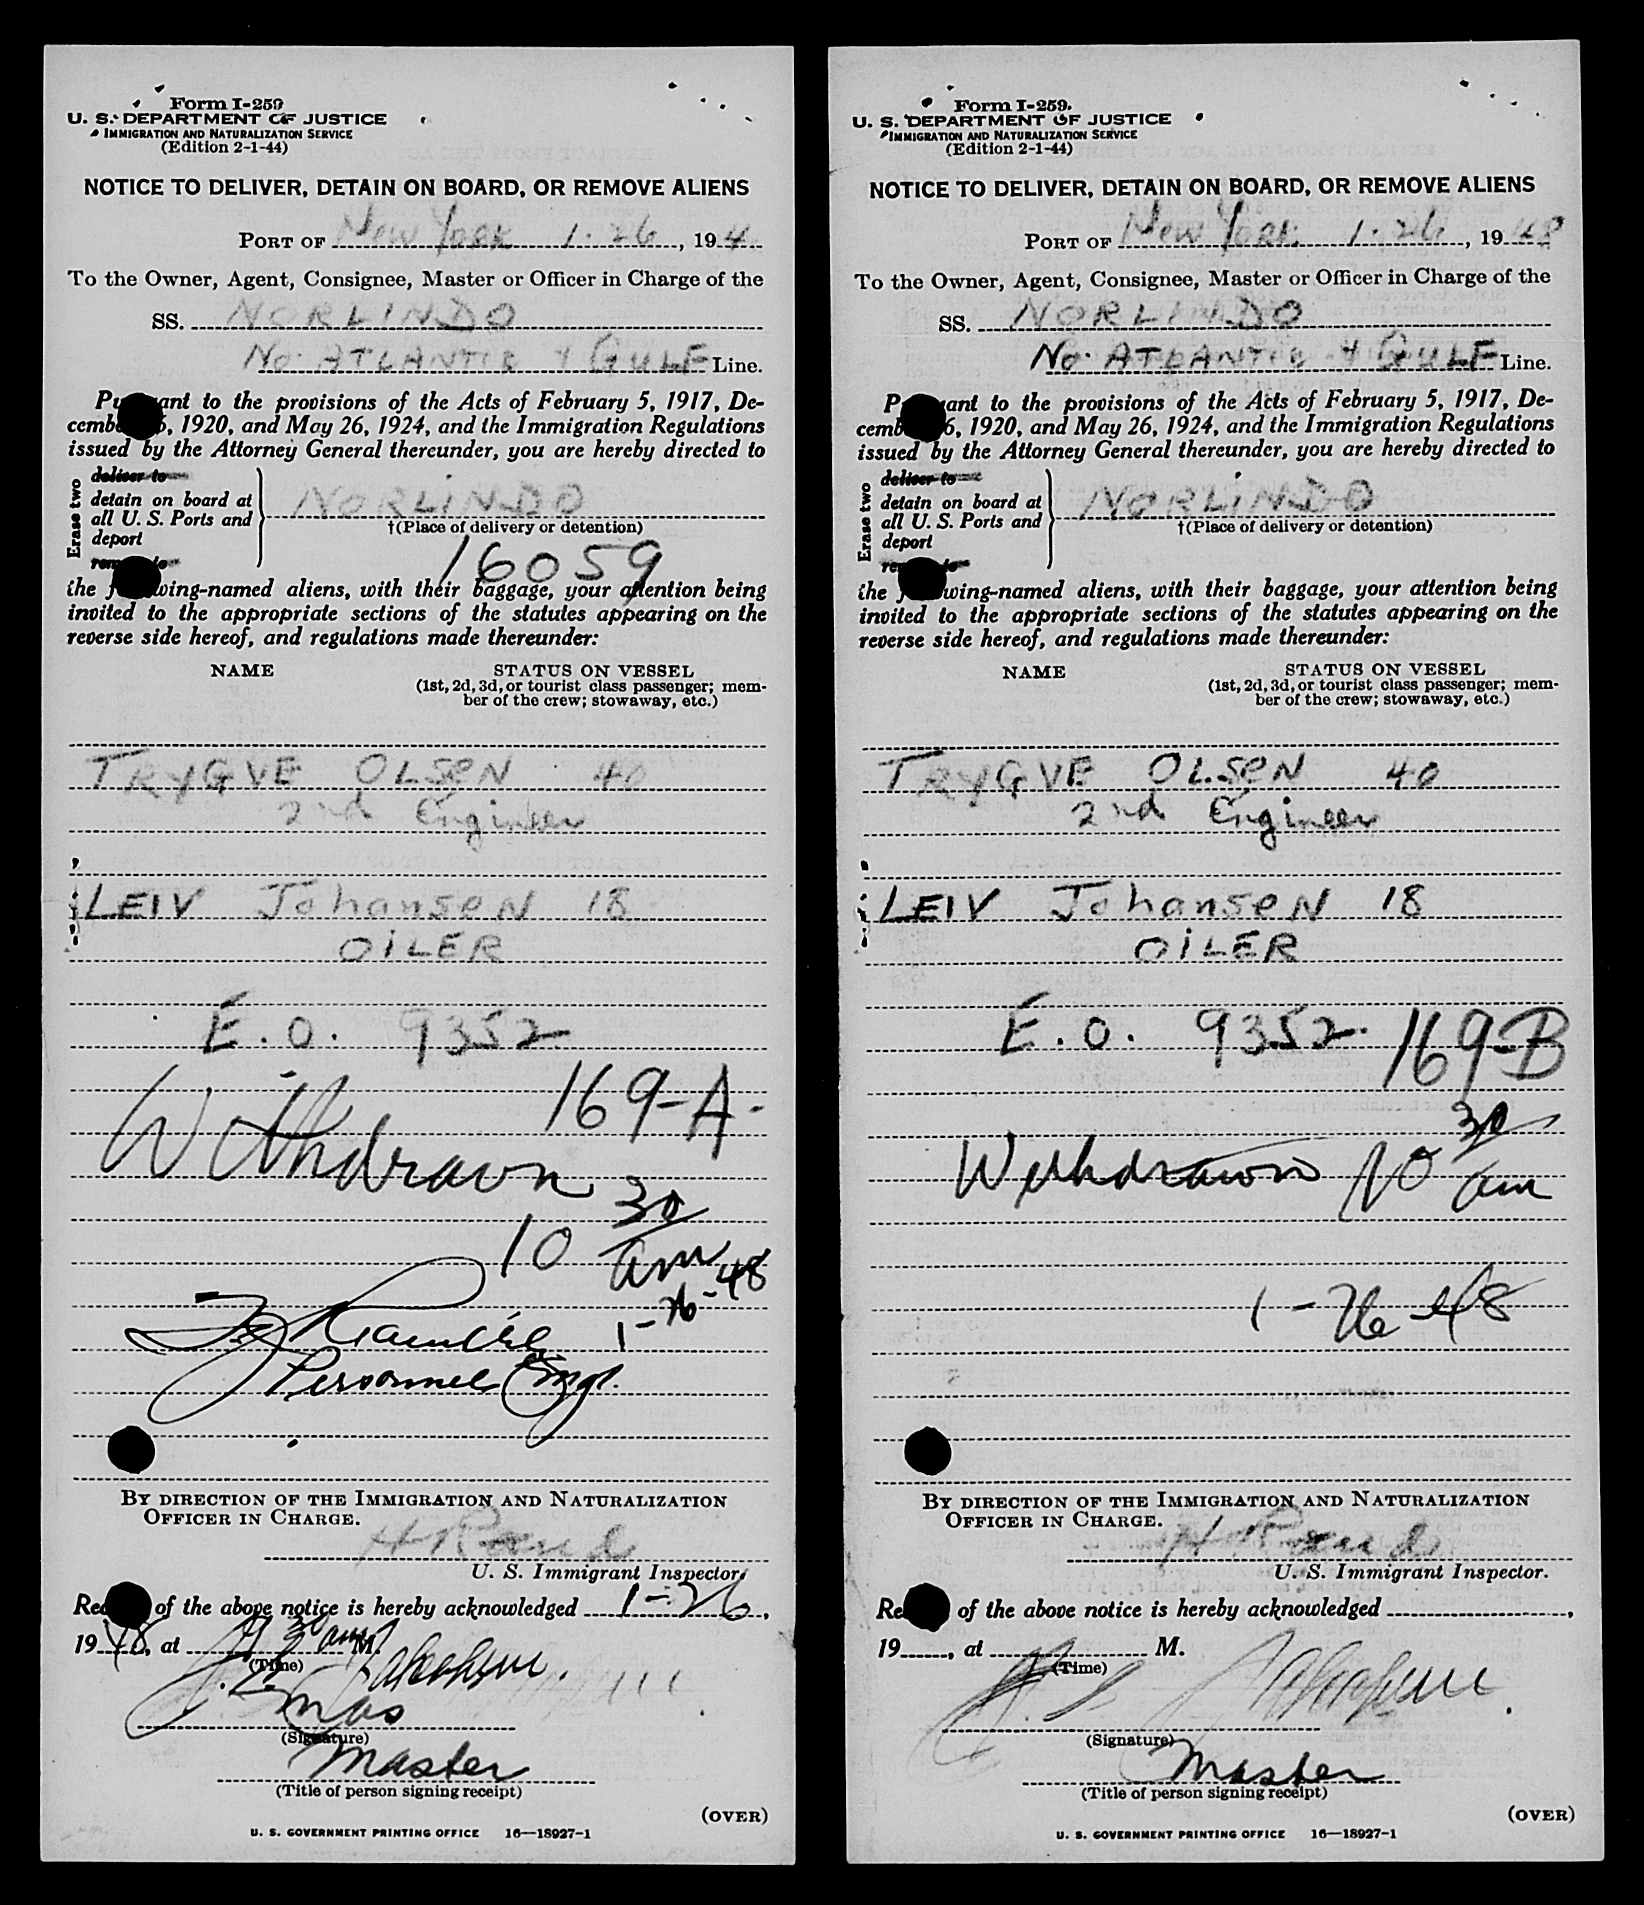 Form I-259
U. S. DEPARTMENT OF JUSTICE
IMMIGRATION AND NATURALIZATION SERVICE
(Edition 2-1-44)
NOTICE TO DELIVER, DETAIN ON BOARD, OR REMOVE ALIENS
PORT OF New York 1-26, 194
To the Owner, Agent, Consignee, Master or Officer in Charge of the
SS. NORLINDO
No. ATLANTIC & GULF Line.
Pursuant to the provisions of the Acts of February 5, 1917, De-
cember 26, 1920, and May 26, 1924, and the Immigration Regulations
issued by the Attorney General thereunder, you are hereby directed to
Erase two
deliver to
detain on board at
all U. S. Ports and
deport
remove to
NORLINDO
†(Place of delivery or detention)
16059
the following-named aliens, with their baggage, your attention being
invited to the appropriate sections of the statutes appearing on the
reverse side hereof, and regulations made thereunder:
NAME STATUS ON VESSEL
(1st, 2d, 3d, or tourist class passenger; mem-
ber of the crew; stowaway, etc.)
TRYGVE OLSEN 40
2nd Engineer
LEIV JohanseN 18
OiLER
E.O. 9352
169-A-
Withdrawn
10 30/am
1-26-48
Personnel Mgr.
BY DIRECTION OF THE IMMIGRATION AND NATURALIZATION
OFFICER IN CHARGE.
H Rand
U. S. Immigrant Inspector.
Receipt of the above notice is hereby acknowledged 1-26,
1948, at 9 30 am M.
(Time)
Jakobsen.
(Signature)
Master
(Title of person signing receipt)
(OVER)
U. S. GOVERNMENT PRINTING OFFICE 16—18927-1
Form I-259.
U. S. DEPARTMENT OF JUSTICE
IMMIGRATION AND NATURALIZATION SERVICE
(Edition 2-1-44)
NOTICE TO DELIVER, DETAIN ON BOARD, OR REMOVE ALIENS
PORT OF New York 1-26, 1948
To the Owner, Agent, Consignee, Master or Officer in Charge of the
SS. NORLINDO
No. ATLANTIC & GULF Line.
Pursuant to the provisions of the Acts of February 5, 1917, De-
cember 26, 1920, and May 26, 1924, and the Immigration Regulations
issued by the Attorney General thereunder, you are hereby directed to
Erase two
deliver to
detain on board at
all U. S. Ports and
deport
remove to
NORLINDO
†(Place of delivery or detention)
the following-named aliens, with their baggage, your attention being
invited to the appropriate sections of the statutes appearing on the
reverse side hereof, and regulations made thereunder:
NAME STATUS ON VESSEL
(1st, 2d, 3d, or tourist class passenger; mem-
ber of the crew; stowaway, etc.)
TRYGVE OLSEN 40
2nd Engineer
LEIV JohanseN 18
OiLER
E.O. 9352. 169-B
Withdrawn 10 30/am
1-26-48
BY DIRECTION OF THE IMMIGRATION AND NATURALIZATION
OFFICER IN CHARGE.
H Rand
U. S. Immigrant Inspector.
Receipt of the above notice is hereby acknowledged ,
19 , at M.
(Time)
Jakobsen.
(Signature)
Master
(Title of person signing receipt)
(OVER)
U. S. GOVERNMENT PRINTING OFFICE 16—18927-1